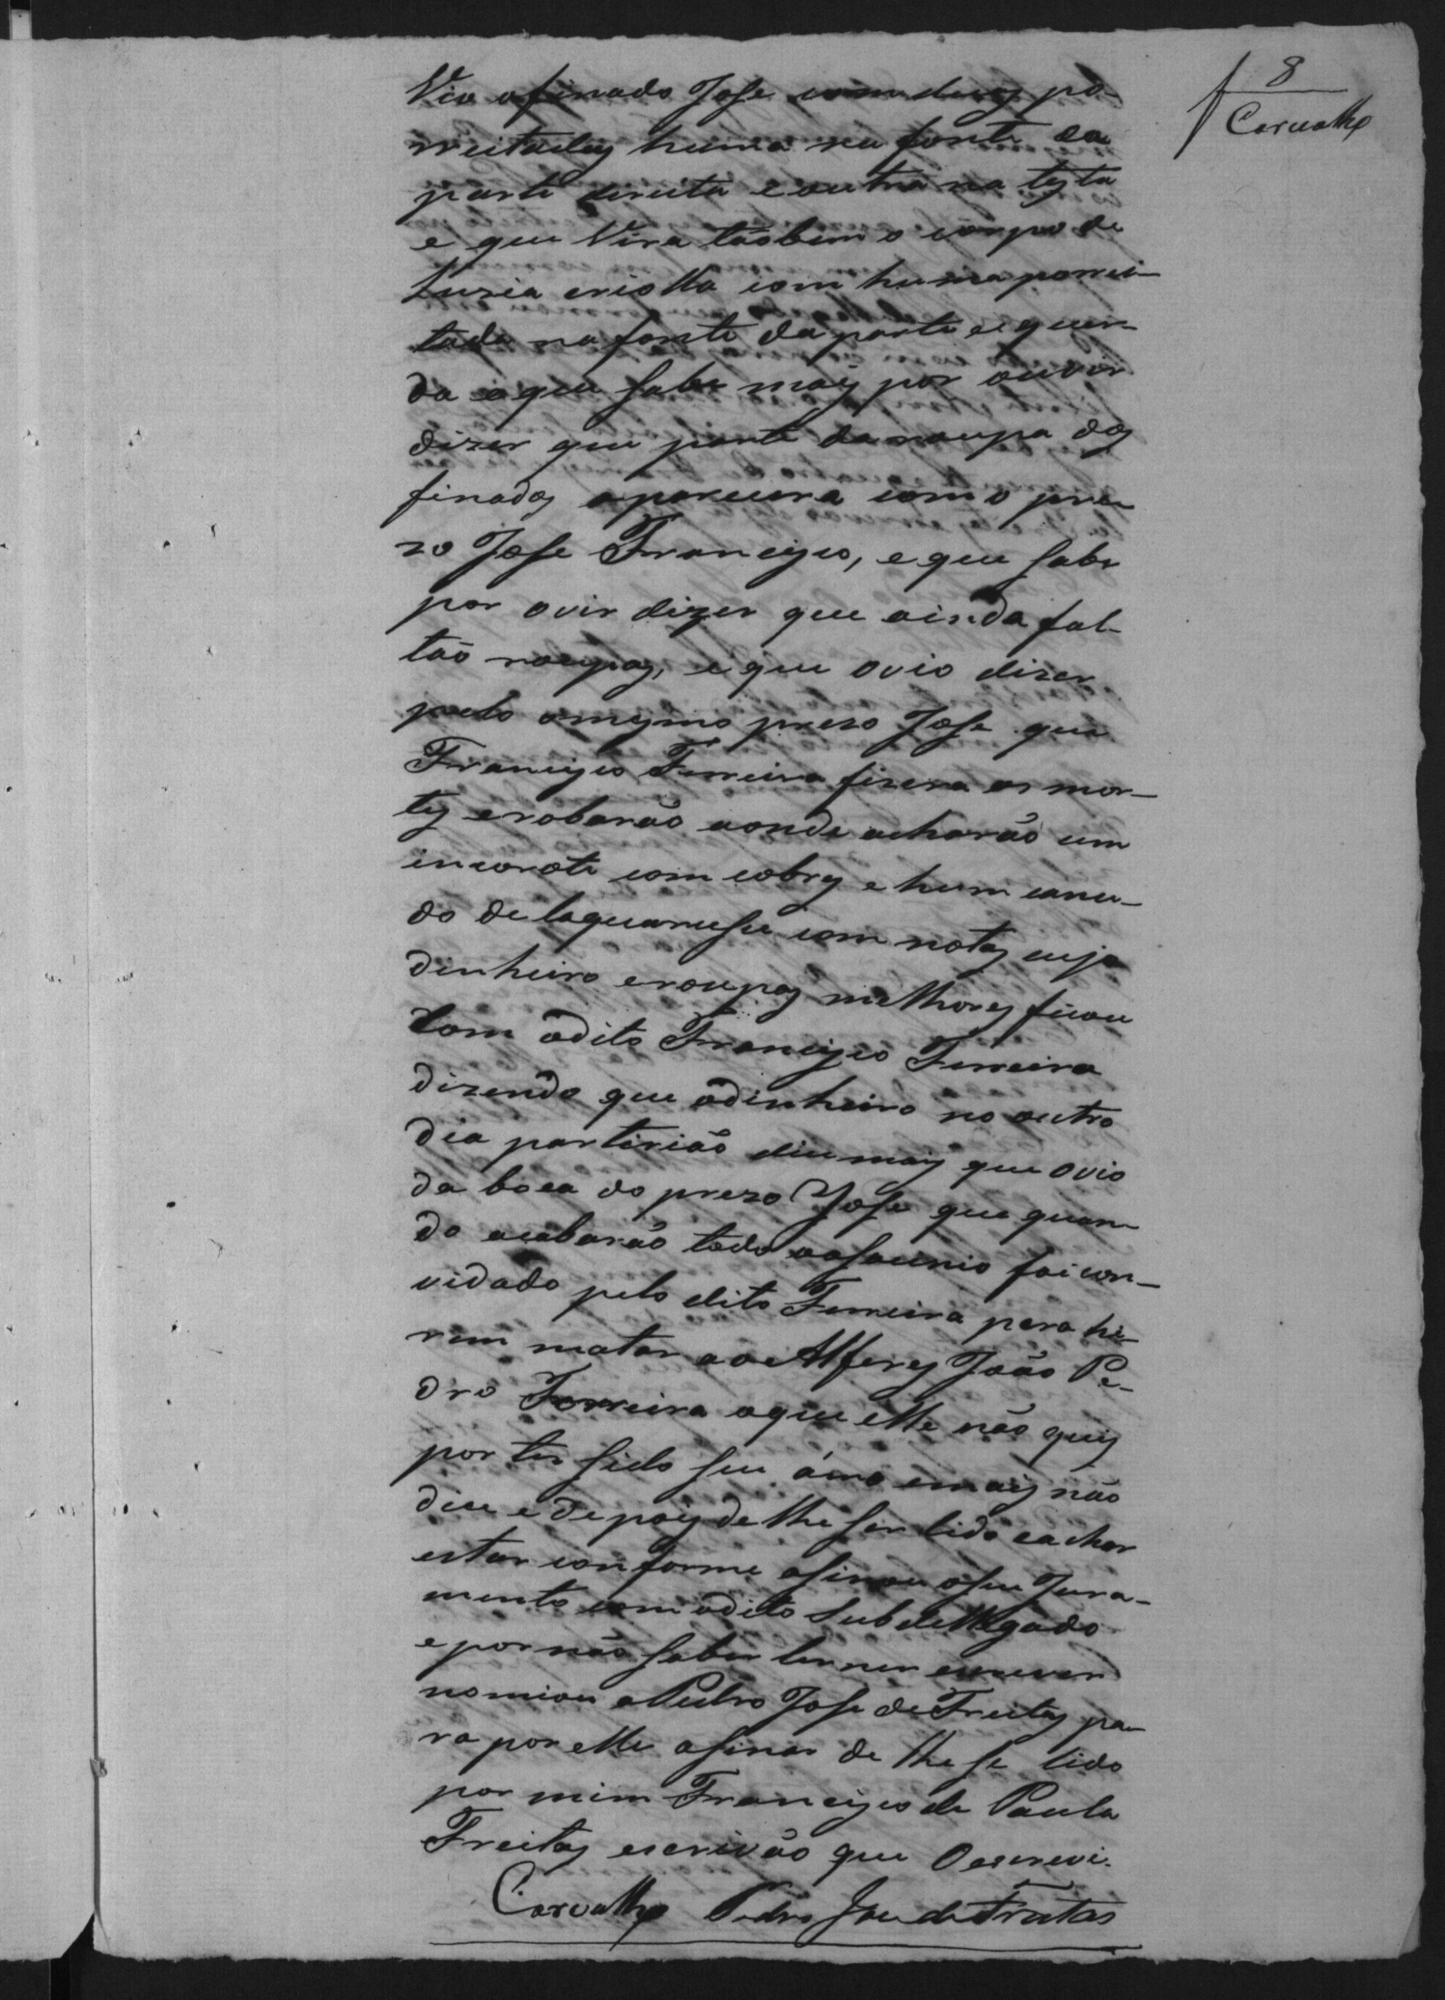 8
Carvalho
Vio o finado Jose com duas po-
rreitadas huma na fonte da
parte direita e outra na testa
e que Vira tãobem o corpo de
Luzia criolla com huma porrei-
tada na fonte da parte esquer-
da e que sabe mais por ouvir
dizer que parte da roupa dos
finados aparecera com o pre-
zo Jose Francisco, e que sabe
por ovir dizer que ainda fal-
tão roupas, e que ovio dizer
pelo o mesmo prezo Jose que
Francisco Ferreira fizera as mor-
tes e robarão aonde acharão um
incorote com cobres e hum canu-
do de taquarusu com notas cujo
dinheiro e roupas milhores ficou
Com o dito Francisco Ferreira
dizendo que o dinheiro no outro
dia partirião dice mais que ovio
da boca do prezo Jose que quan-
do acabarão todo o asacinio foi con-
vidado pelo dito Ferreira para hi-
rem matar ao Alferes João Pe-
dro Ferreira o que elle não quis
por ter sido seu ámo e mais não
dice e depois de lhe ser lido e achar
estar conforme asinou o seu Jura-
mento com o dito Subdellegado
e por não saber ler nem escrever
nomiou a Pedro Jose de Freitas pa-
ra por elle asinar de lhe se lido
por mim Francisco de Paula
Freitas escrivão que O escrevi.
Carvalho Pedro Jose de Freitas